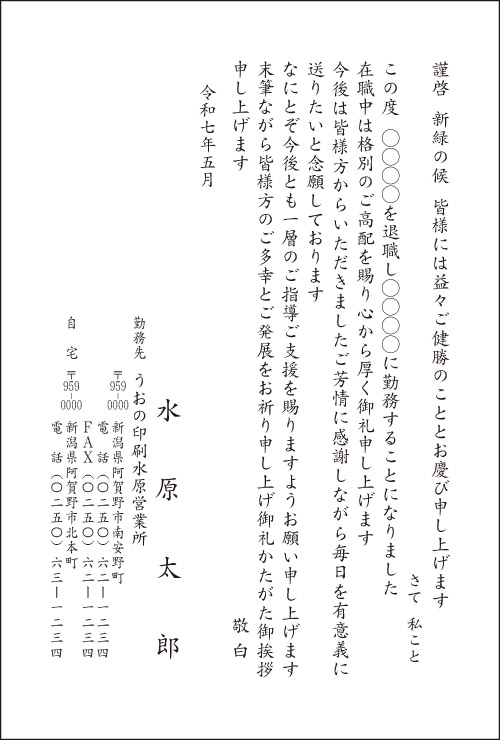 謹啓　新緑の候　皆様には益々ご健勝のこととお慶び申し上げます
さて　私こと
この度　〇〇〇〇を退職し〇〇〇〇に勤務することになりました
在職中は格別のご高配を賜り心から厚く御礼申し上げます
今後は皆様方からいただきましたご芳情に感謝しながら毎日を有意義に
送りたいと念願しております
なにとぞ今後とも一層のご指導ご支援を賜りますようお願い申し上げます
末筆ながら皆様方のご多幸とご発展をお祈り申し上げ御礼かたがた御挨拶
申し上げます
敬白
令和七年五月
水原太郎
勤務先　うおの印刷水原営業所
〒959-0000　新潟県阿賀野市南安野町
電話（〇二五〇）六二ー一二三四
ＦＡＸ（〇二五〇）六二ー一二三四
自宅　〒959-0000　新潟県阿賀野市北本町
電話（〇二五〇）六三ー一二三四